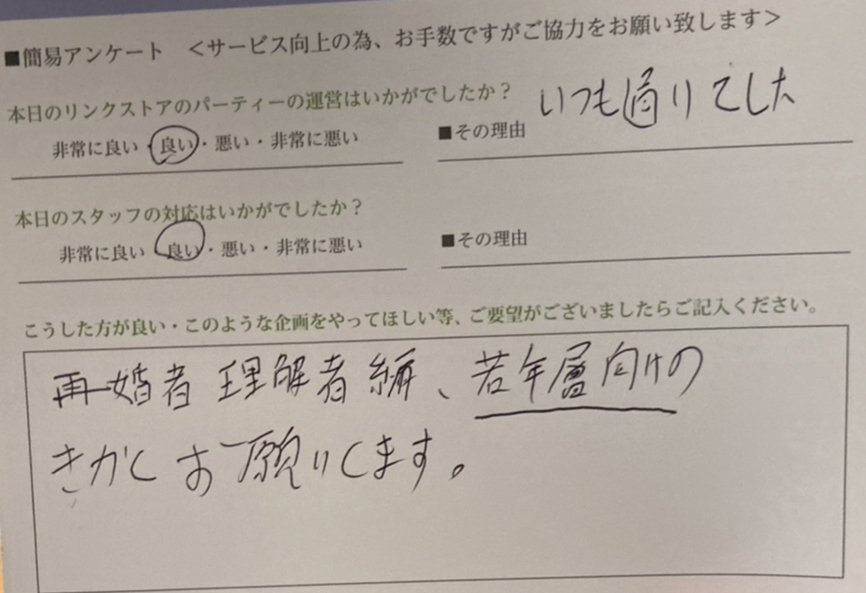 ■簡易アンケート <サービス向上の為、お手数ですがご協力をお願い致します>
本日のリンクストアのパーティーの運営はいかがでしたか？
非常に良い・良い・悪い・非常に悪い
■その理由 いつも通りでした
本日のスタッフの対応はいかがでしたか？
非常に良い・良い・悪い・非常に悪い
■その理由
こうした方が良い・このような企画をやってほしい等、ご要望がございましたらご記入ください。
再婚者理解者編、若年層向けの
きかくお願いします。